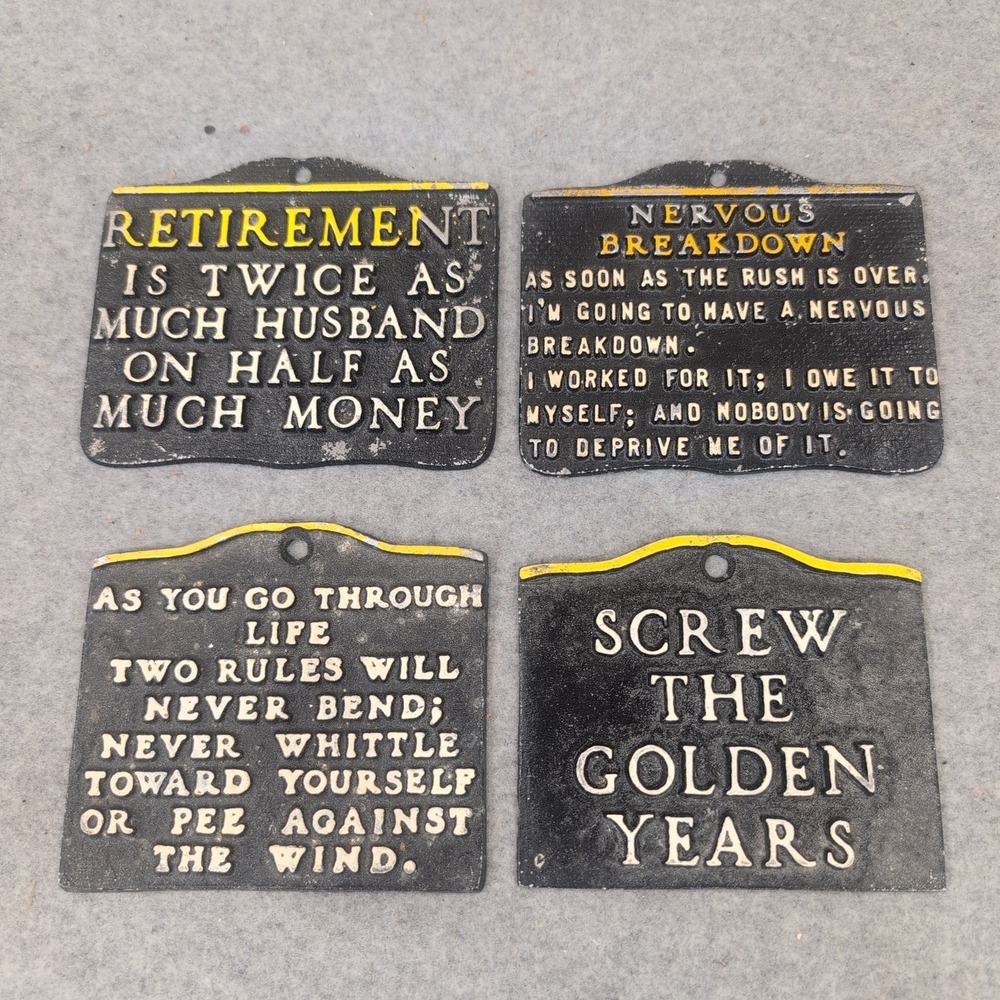 RETIREMENT
IS TWICE AS
MUCH HUSBAND
ON HALF AS
MUCH MONEY
NERVOUS
BREAKDOWN
AS SOON AS THE RUSH IS OVER,
I'M GOING TO HAVE A NERVOUS
BREAKDOWN.
I WORKED FOR IT; I OWE IT TO
MYSELF; AND NOBODY IS GOING
TO DEPRIVE ME OF IT.
AS YOU GO THROUGH
LIFE
TWO RULES WILL
NEVER BEND;
NEVER WHITTLE
TOWARD YOURSELF
OR PEE AGAINST
THE WIND.
SCREW
THE
GOLDEN
YEARS